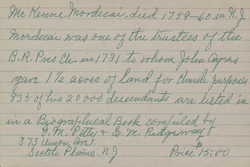 Mc Kenne Mordecai, died 1759-60 in N.J.
Mordecai was one of the trustees of the
B.R. Pres Ch. in 1731 to whom John Ayres
gave 1½ acres of land for Church purposes
835 of his 20000 descendants are listed in
in a Biographical Book compiled by
F. M. Potter & E. M. Ridgeway
373 Union Ave.
Scotch Plains. N.J Price $15.00